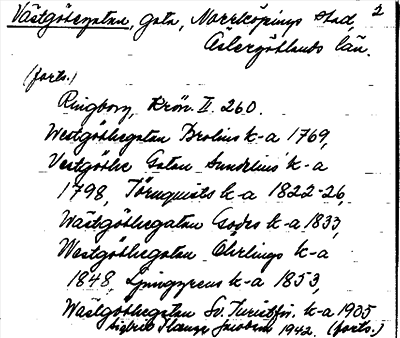 Västgötegatan, gata, Norrköpings stad 2
Östergötlands län.
(forts.)
Ringborg, Krön. II. 260.
Westgöthegatan Brolins k-a 1769,
Vestgöthe Gatan Sundelius' k-a
1798, Törnquists k-a 1822-26
Wästgöthegatan Godes k-a 1833,
Westgöthegatan Öhrlings k-a
1848, Ljunggrens k-a 1853,
Wästgöthegatan Sv. Turistfören. k-a 1905
1942. (forts.)